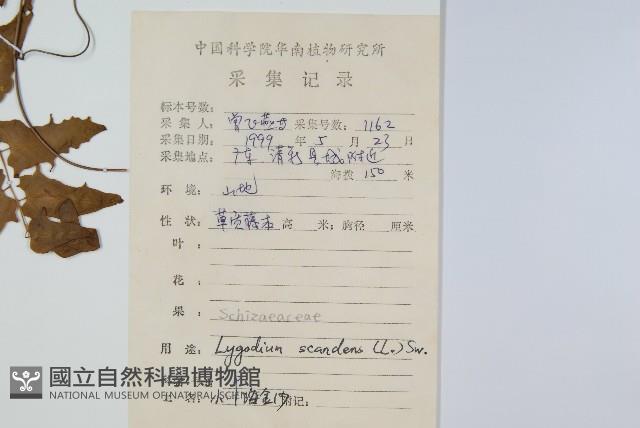 中国科学院华南植物研究所
采集记录
标本号数:
采集人: 曾飞燕 采集号数: 1162
采集日期: 1999 年 5 月 23 日
采集地点: 广东 清新县城附近
海拨 150 米
环境: 山地
性状: 草质藤本 高 米; 胸径 厘米
叶:
花:
果: Schizaeaceae
用途: Lygodium scandens (L.) Sw.
國立自然科學博物館
NATIONAL MUSEUM OF NATURAL SCIENCE
小叶海金沙 附记: